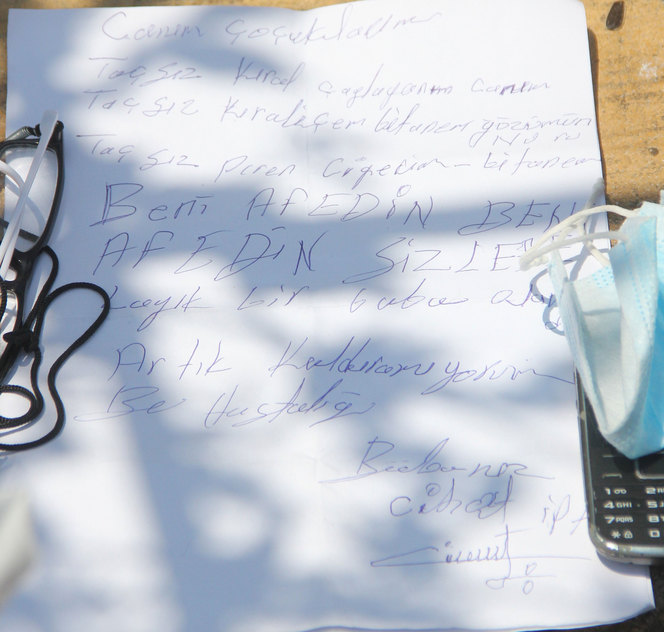 Canım Çoçuklarım
Taçsız Kıral Çağlayanım Canım
Taçsız Kıraliçem bitanem gözümün
Nuru
Taç sız piren Ciğerim bitanem
Beni AFEDİN BENİ
AFEDİN SİZLE
Layık bir baba
Artık Kaldıramıyorum
Bu Hastalığı
Babanız
Cihat
1 2
4 GHI 5
7 PQRS 8
* 0